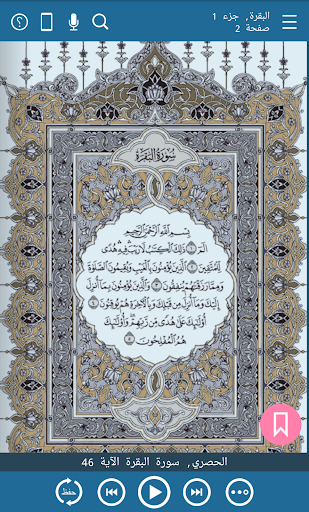 البقرة, جزء 1
صفحة 2
سُورَةُ البَقَرَةِ
بِسْمِ اللَّهِ الرَّحْمَٰنِ الرَّحِيمِ
الٓمٓ ١ ذَٰلِكَ الْكِتَٰبُ لَا رَيْبَ فِيهِ هُدًى
لِّلْمُتَّقِينَ ٢ الَّذِينَ يُؤْمِنُونَ بِالْغَيْبِ وَيُقِيمُونَ الصَّلَوٰةَ
وَمِمَّا رَزَقْنَٰهُمْ يُنفِقُونَ ٣ وَالَّذِينَ يُؤْمِنُونَ بِمَا أُنزِلَ
إِلَيْكَ وَمَا أُنزِلَ مِن قَبْلِكَ وَبِالْءَاخِرَةِ هُمْ يُوقِنُونَ ٤
أُو۟لَٰئِكَ عَلَىٰ هُدًى مِّن رَّبِّهِمْ وَأُو۟لَٰئِكَ
هُمُ الْمُفْلِحُونَ ٥
الحصري, سورة البقرة الآية 46
حفظ